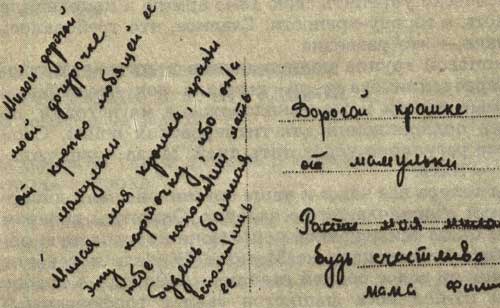 Милой дорогой
моей дочурочке
от крепко любящей её
мамульки
Милая мая крошка, храни
эту карточку, ибо она
тебе мать
будешь большая
вспомнишь
её
Дорогой крошке
от мамульки
Расти моя
будь счастлива
мама